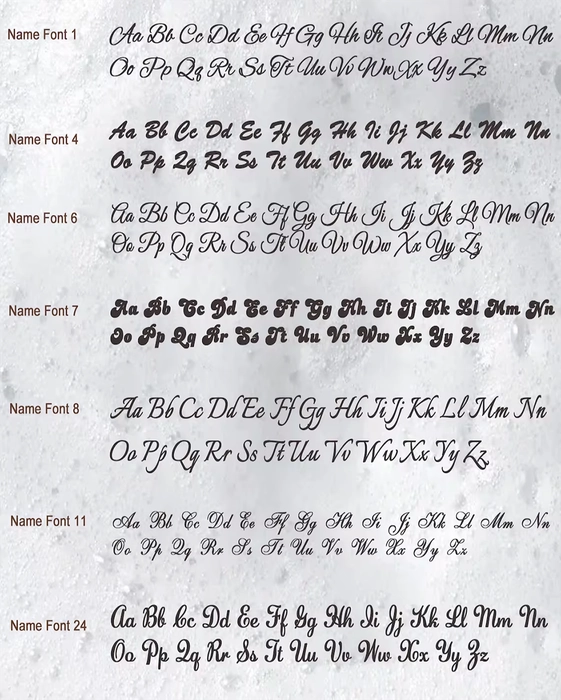 Name Font 1 Aa Bb Cc Dd Ee Ff Gg Hh Ii Jj Kk Ll Mm Nn
Oo Pp Qq Rr Ss Tt Uu Vv Ww Xx Yy Zz
Name Font 4 Aa Bb Cc Dd Ee Ff Gg Hh Ii Jj Kk Ll Mm Nn
Oo Pp Qq Rr Ss Tt Uu Vv Ww Xx Yy Zz
Name Font 6 Aa Bb Cc Dd Ee Ff Gg Hh Ii Jj Kk Ll Mm Nn
Oo Pp Qq Rr Ss Tt Uu Vv Ww Xx Yy Zz
Name Font 7 Aa Bb Cc Dd Ee Ff Gg Hh Ii Jj Kk Ll Mm Nn
Oo Pp Qq Rr Ss Tt Uu Vv Ww Xx Yy Zz
Name Font 8 Aa Bb Cc Dd Ee Ff Gg Hh Ii Jj Kk Ll Mm Nn
Oo Pp Qq Rr Ss Tt Uu Vv Ww Xx Yy Zz
Name Font 11 Aa Bb Cc Dd Ee Ff Gg Hh Ii Jj Kk Ll Mm Nn
Oo Pp Qq Rr Ss Tt Uu Vv Ww Xx Yy Zz
Name Font 24 Aa Bb Cc Dd Ee Ff Gg Hh Ii Jj Kk Ll Mm Nn
Oo Pp Qq Rr Ss Tt Uu Vv Ww Xx Yy Zz